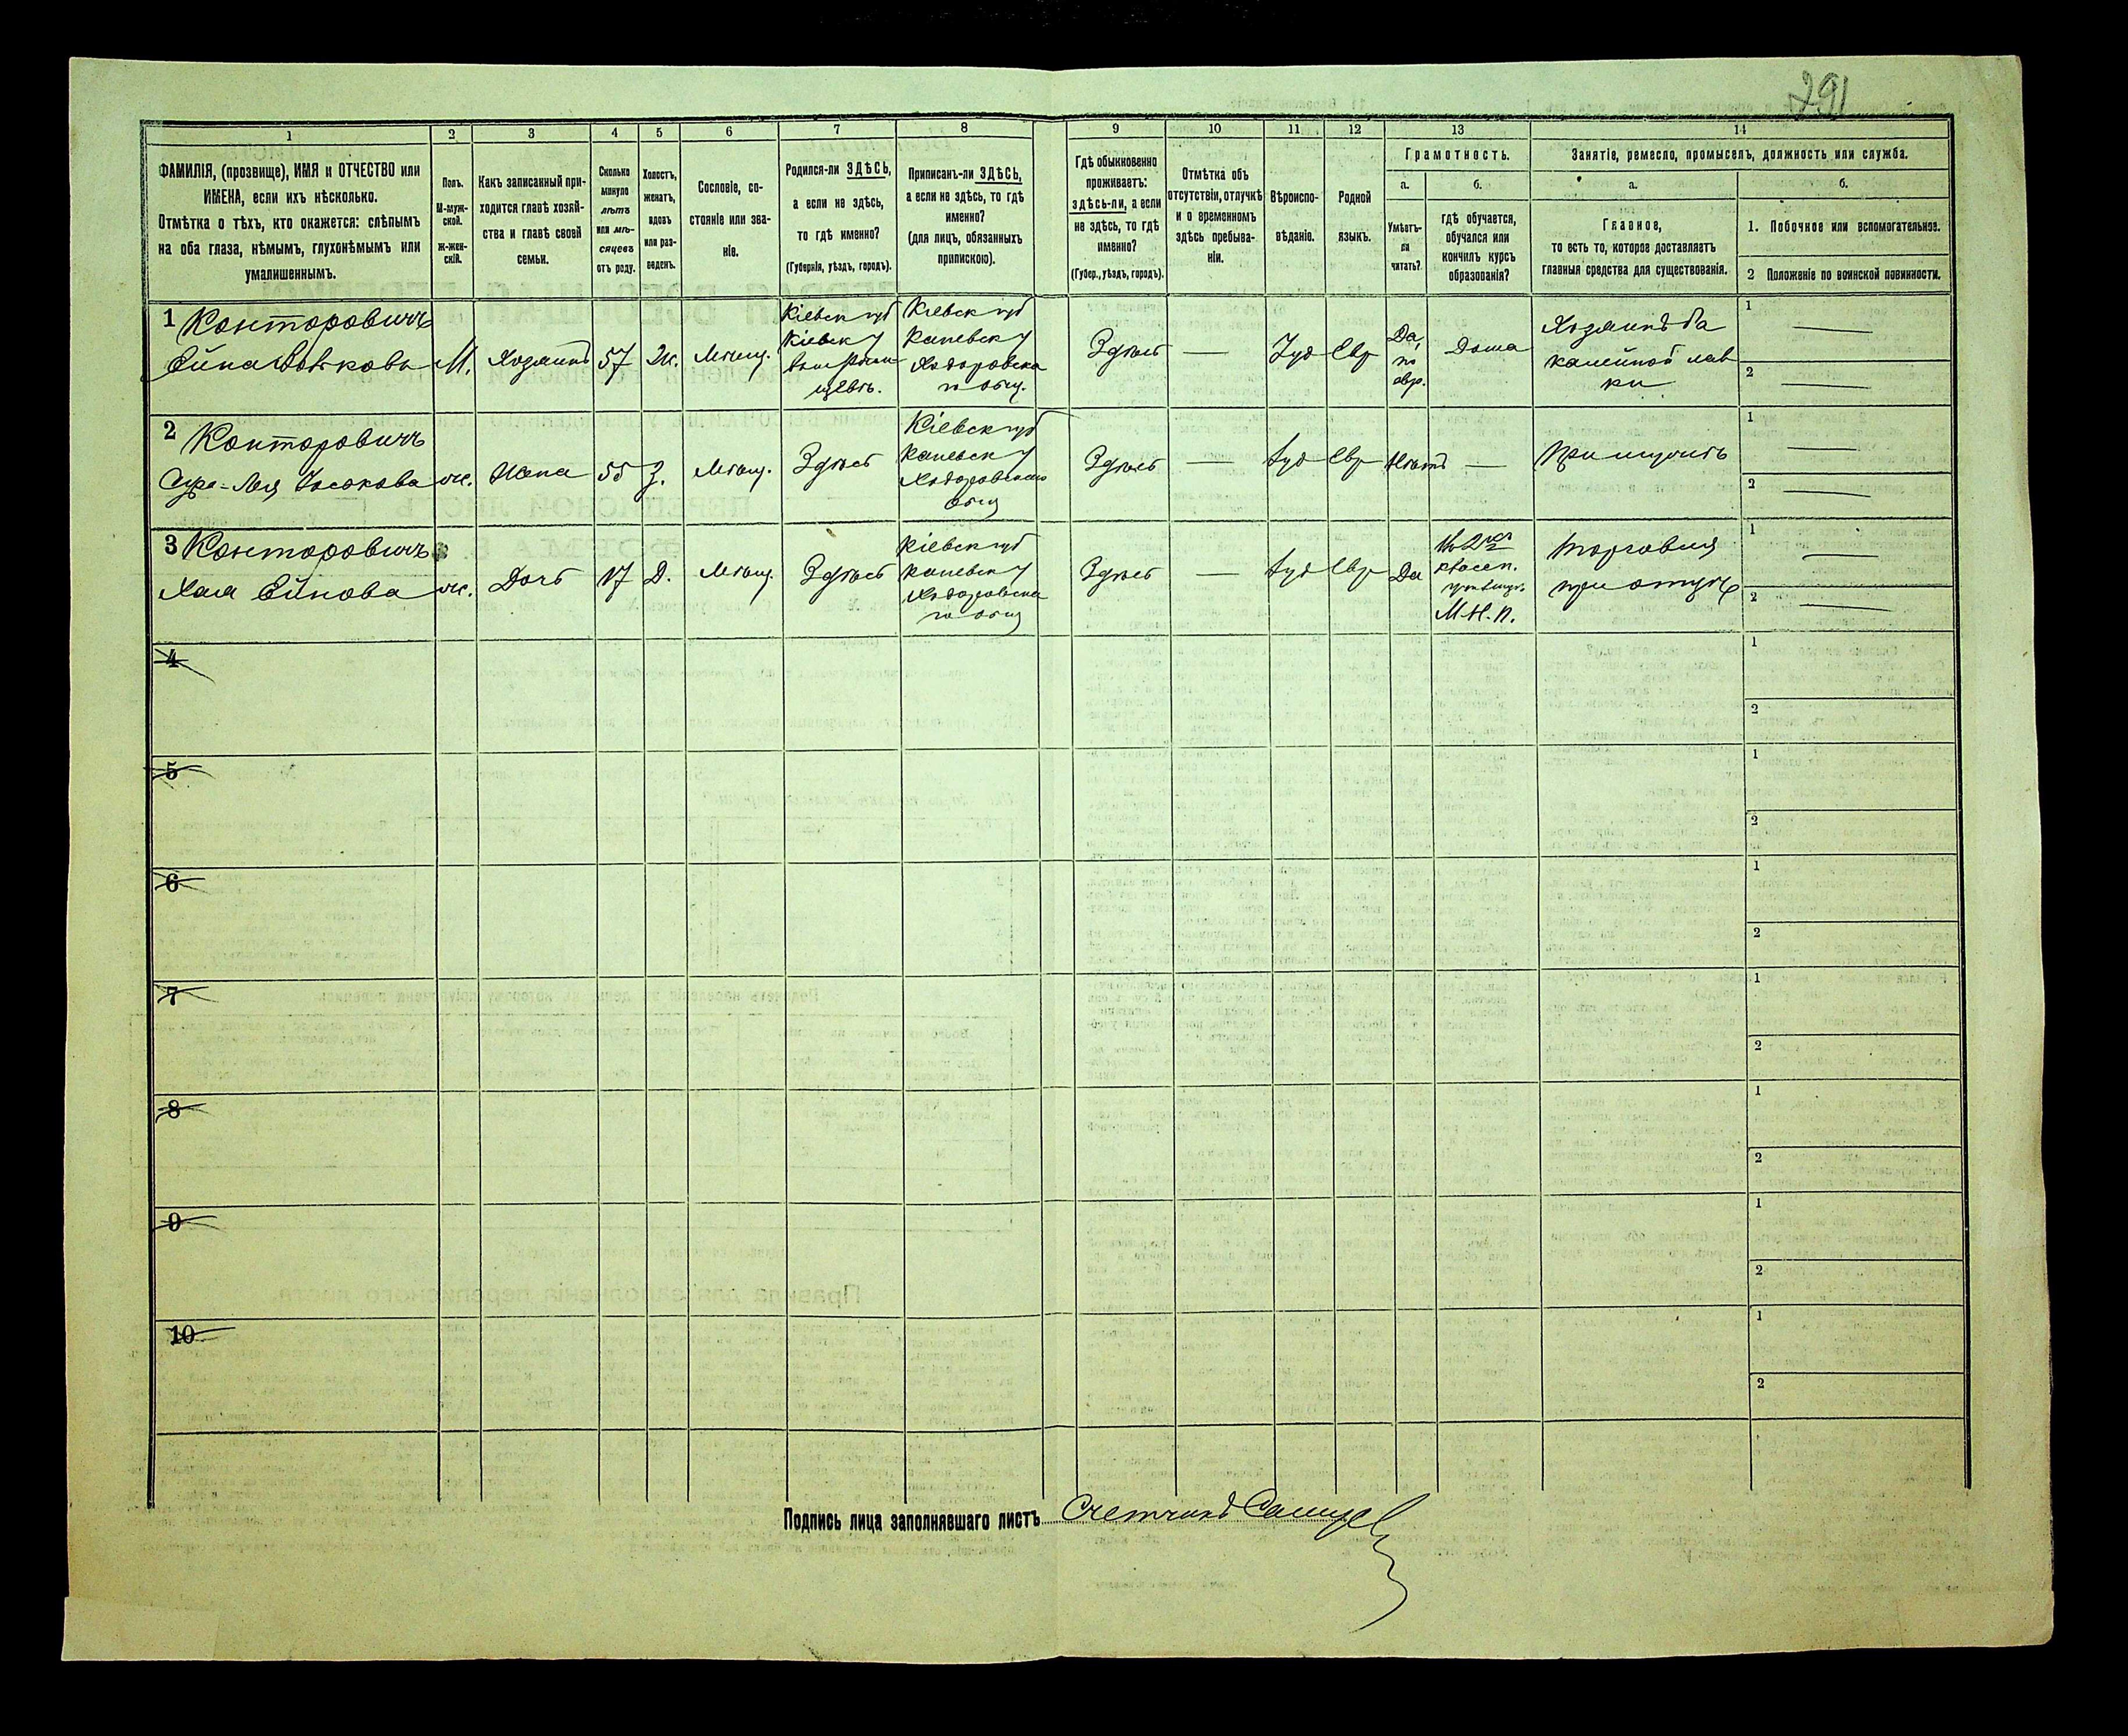 291
1
2
3
4
5
6
7
8
9
10
11
12
13
14
ФАМИЛІЯ, (прозвище), ИМЯ и ОТЧЕСТВО или
ИМЕНА, если ихъ нѣсколько.
Отмѣтка о тѣхъ, кто окажется: слѣпымъ
на оба глаза, нѣмымъ, глухонѣмымъ или
умалишеннымъ.
Полъ.
М-муж-
ской.
ж-жен-
скій.
Какъ записанный при-
ходится главѣ хозяй-
ства и главѣ своей
семьи.
Сколько
минуло
лѣтъ
или мѣ-
сяцевъ
отъ роду.
Холостъ,
женатъ,
вдовъ
или раз-
веденъ.
Сословіе, со-
стояніе или зва-
ніе.
Родился-ли ЗДѢСЬ,
а если не здѣсь,
то гдѣ именно?
(Губернія, уѣздъ, городъ).
Приписанъ-ли ЗДѢСЬ,
а если не здѣсь, то гдѣ
именно?
(для лицъ, обязанныхъ
припискою).
Гдѣ обыкновенно
проживаетъ:
здѣсь-ли, а если
не здѣсь, то гдѣ
именно?
(Губер., уѣздъ, городъ).
Отмѣтка объ
отсутствіи, отлучкѣ
и о временномъ
здѣсь пребыва-
ніи.
Вѣроиспо-
вѣданіе.
Родной
языкъ.
Грамотность.
а.
Умѣетъ-
ли
читать?
б.
гдѣ обучается,
обучался или
кончилъ курсъ
образованія?
Занятіе, ремесло, промыселъ, должность или служба.
а.
Главное,
то есть то, которое доставляетъ
главныя средства для существованія.
б.
1. Побочное или вспомогательное.
2 Положеніе по воинской повинности.
1 Конторовичъ
М.
Хозяинъ
57
Ж.
Мѣщ.
Кіевск губ
Кіевск у
Кіевск губ
Каневск у
Ходоровска
го общ.
Здѣсь
—
Іуд
Евр
Да,
по
евр.
Дома
Хозяинъ ба
калейной лав
ки
1 —
2 —
2 Конторовичъ
Сура-Лея Іоськова
ж.
Жена
55
З.
Мѣщ.
Здѣсь
Кіевск губ
Каневск у
Ходоровскаго
общ
Здѣсь
—
Іуд
Евр
Нѣтъ
—
При мужѣ
1 —
2 —
3 Конторовичъ
Хая Ейнова
ж.
Дочь
17
Д.
Мѣщ.
Здѣсь
Кіевск губ
Каневск у
Ходоровска
го общ
Здѣсь
—
Іуд
Евр
Да
М.Н.П.
Торговля
при отцѣ
1 —
2 —
4
1
2
5
1
2
6
1
2
7
1
2
8
1
2
9
1
2
10
1
2
Подпись лица заполнявшаго листъ Счетчикъ